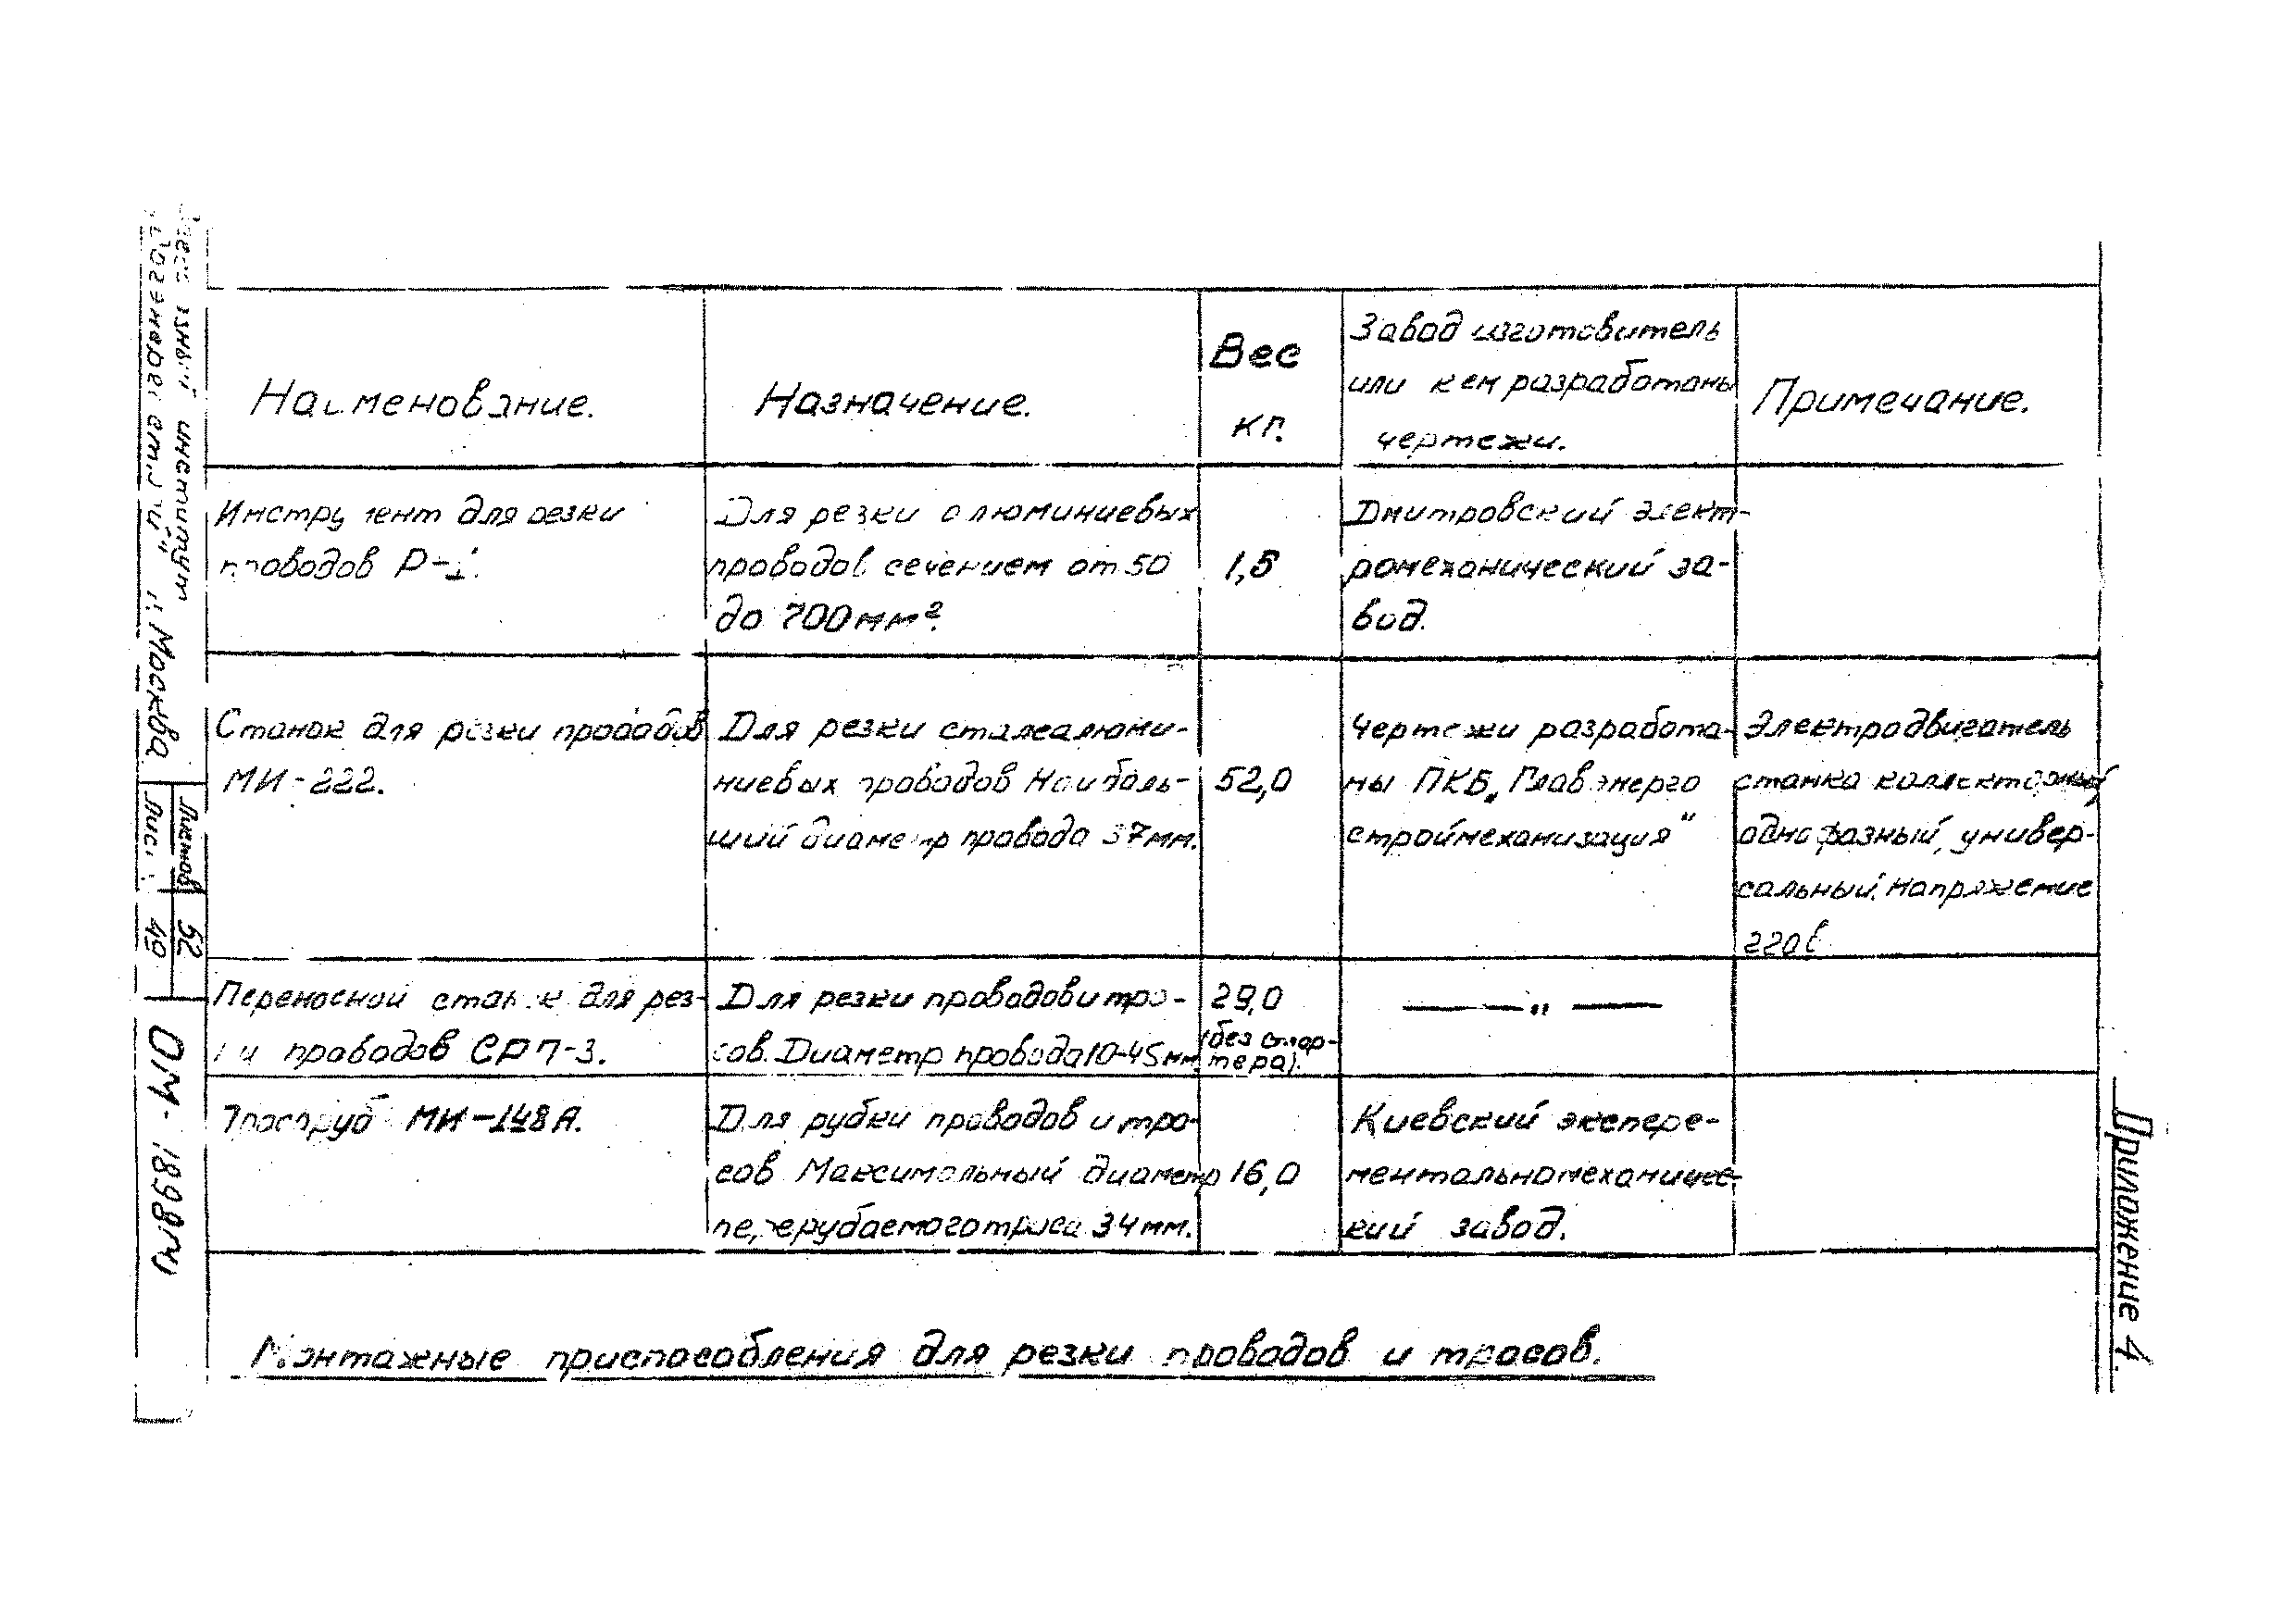 Приложение 4.
Наименование.
Назначение.
Вес
кг.
Завод изготовитель
или кем разработаны
чертежи.
Примечание.
Инструмент для резки
проводов Р-1.
Для резки алюминиевых
проводов сечением от 50
до 700 мм².
1,5
Дмитровский элект-
ромеханический за-
вод.
Станок для резки проводов
МИ-222.
Для резки сталеалюми-
ниевых проводов Наиболь-
ший диаметр провода 37 мм.
52,0
Чертежи разработа-
ны ПКБ „Главэнерго
строймеханизация"
Электродвигатель
станка коллекторный
однофазный, универ-
сальный. Напряжение
220 в
Переносной станок для рез-
ки проводов СРП-3.
Для резки проводов и тро-
сов. Диаметр провода 10-45 мм.
29,0
(без стар-
тера).
— " —
Тросоруб МИ-148А.
Для рубки проводов и тро-
сов Максимальный диаметр
перерубаемого троса 34 мм.
16,0
Киевский экспере-
ментальномеханичес-
кий завод.
Монтажные приспособления для резки проводов и тросов.
институт
г. Москва
Листов 52
Лист 49
ОМ-1898